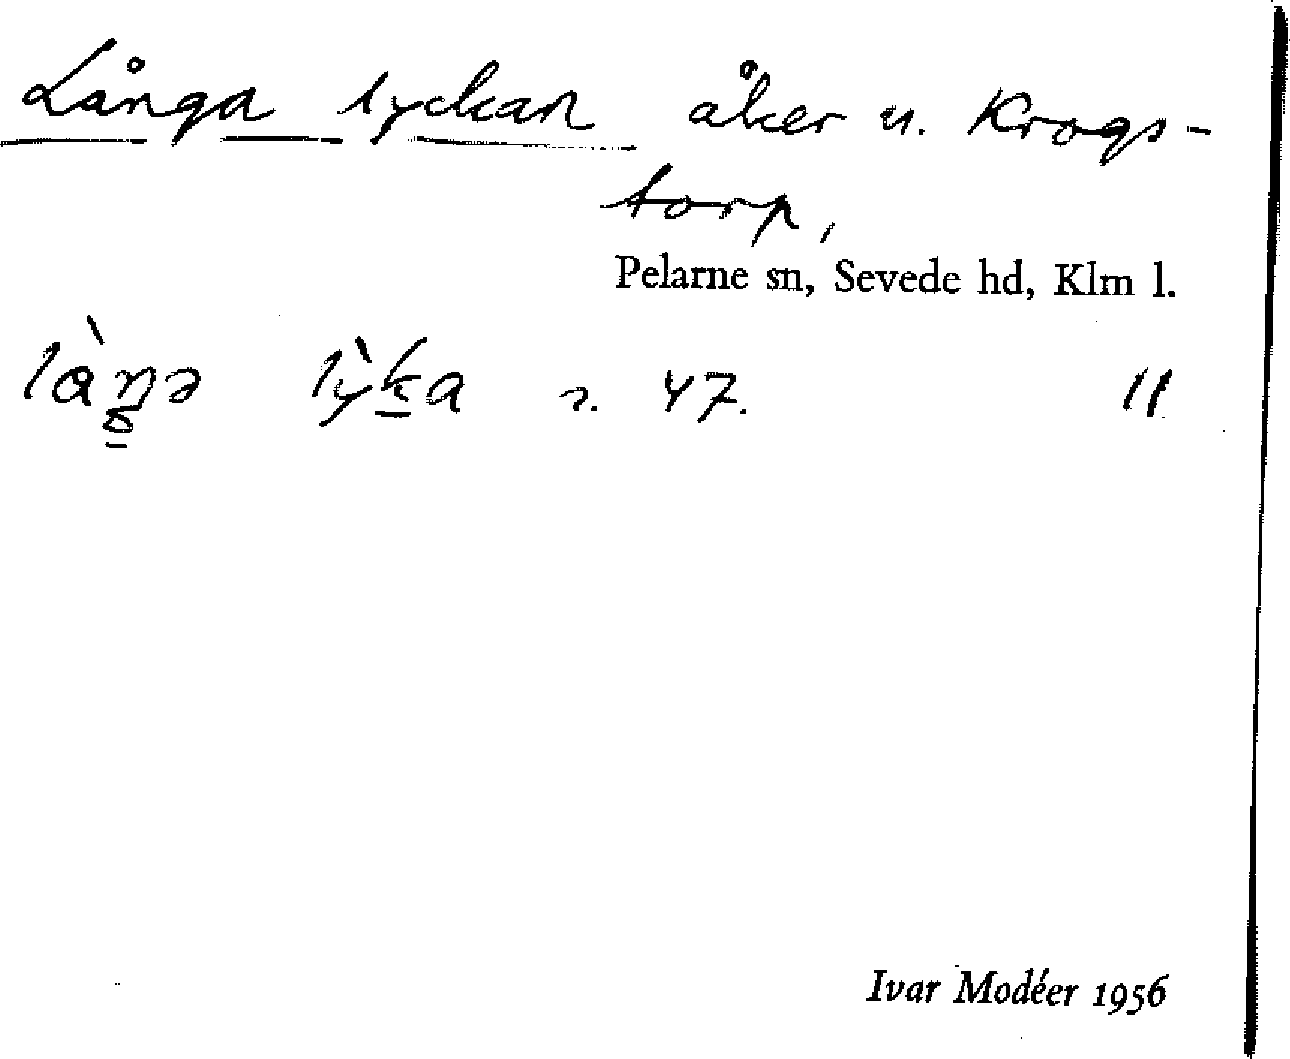 Långa lyckan åker u. Krogs-
torp,
Pelarne sn, Sevede hd, Klm l.
làŋə lỳka 47. 11
Ivar Modéer 1956